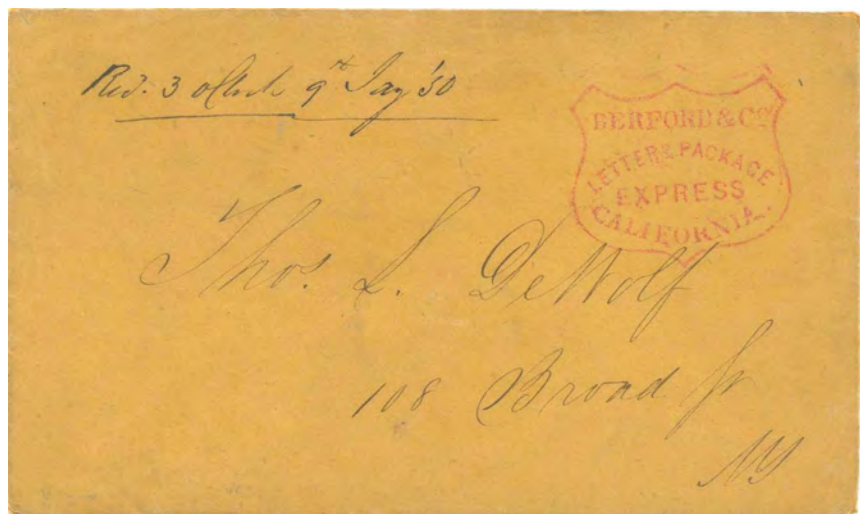 Recd. 3 oClock 9th Jany '50
BERFORD & CO
LETTER & PACKAGE
EXPRESS
CALIFORNIA.
Thos. L. DeWolf
108 Broad St
NY